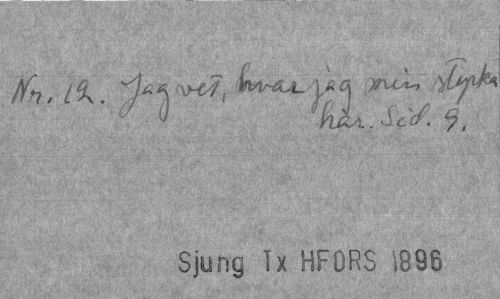 Nr. 12. Jag vet, hvar jag min styrka
har. Sid. 9.
Sjung Tx HFORS 1896